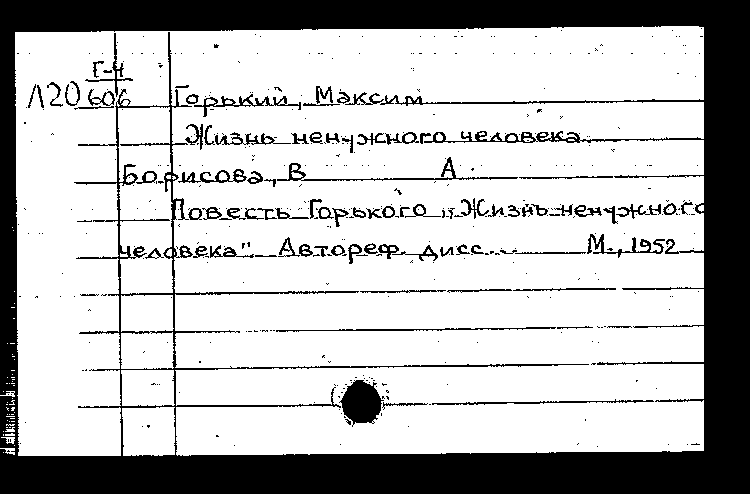 Г-4
Л20 606 Горький, Максим
Жизнь ненужного человека.
Борисова, В А.
Повесть Горького „Жизнь ненужного
человека". Автореф. дисс... М., 1952